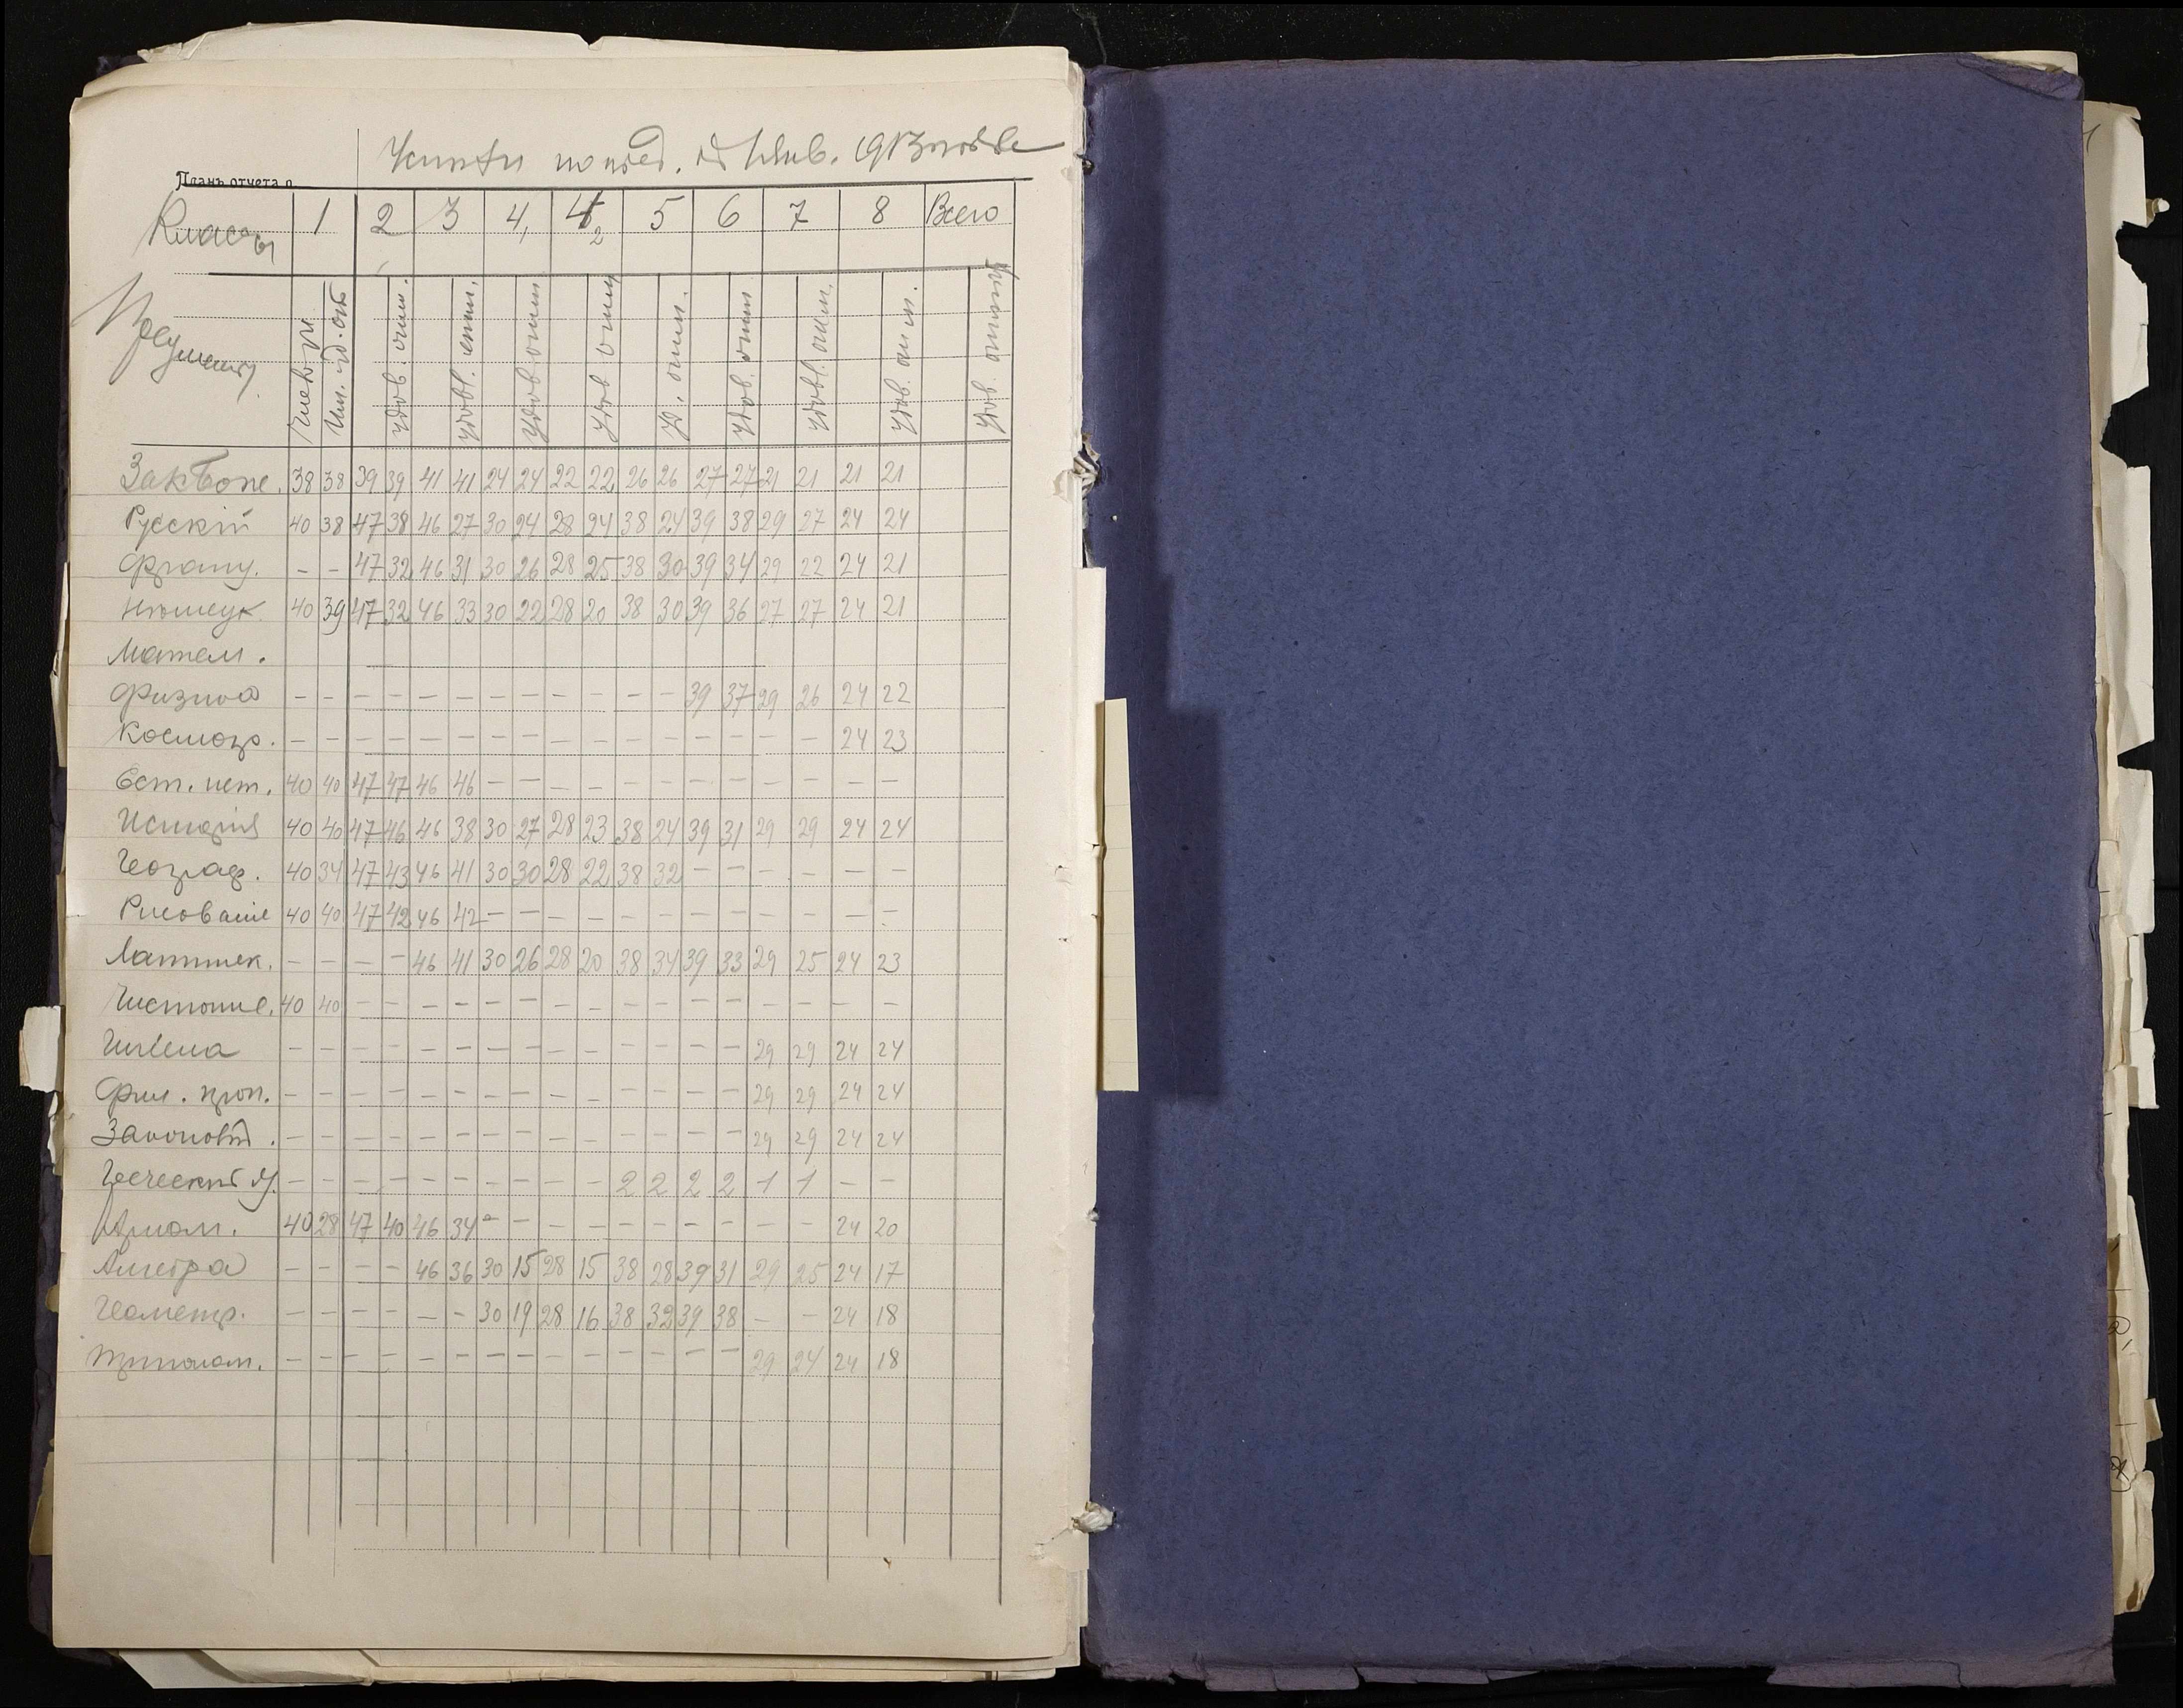 Успехи по пред.
Планъ отчета о
Классы 1 2 3 4, 4₂ 5 6 7 8 Всего
Предметы
Удов. отм. Удовл. отм. Удов отм Удов отм Уд. отм. Удов. отм Удовл. отм. Удов. отм. Удов. отмет
Зак Боже. 38 38 39 39 41 41 24 24 22 22 26 26 27 27 21 21 21 21
Русскій 40 38 47 38 46 27 30 24 28 24 38 24 39 38 29 27 24 24
Франц. - - 47 32 46 31 30 26 28 25 38 30 39 34 29 22 24 21
Нѣмецк. 40 39 47 32 46 33 30 22 28 20 38 30 39 36 27 27 24 21
Матем.
Физика - - - - - - - - - - - - 39 37 29 26 24 22
Космогр. - - - - - - - - - - - - - - - - 24 23
Ест. ист. 40 40 47 47 46 46 - - - - - - - - - - - -
Исторія 40 40 47 46 46 38 30 27 28 23 38 24 39 31 29 29 24 24
Географ. 40 34 47 43 46 41 30 30 28 22 38 32 - - - - - -
Рисованіе 40 40 47 42 46 42 - - - - - - - - - - - -
Латинск. - - - - 46 41 30 26 28 20 38 34 39 33 29 25 24 23
Чистопис. 40 40 - - - - - - - - - - - - - - - -
Гигіена - - - - - - - - - - - - - - 29 29 24 24
Фил. проп. - - - - - - - - - - - - - - 29 29 24 24
Законовѣд. - - - - - - - - - - - - - - 29 29 24 24
Греческій яз. - - - - - - - - - - 2 2 2 2 1 1 - -
Ариөм. 40 28 47 40 46 34 - - - - - - - - - - 24 20
Алгебра - - - - 46 36 30 15 28 15 38 28 39 31 29 25 24 17
Геометр. - - - - - - 30 19 28 16 38 32 39 38 - - 24 18
Тригоном. - - - - - - - - - - - - - - 29 24 24 18